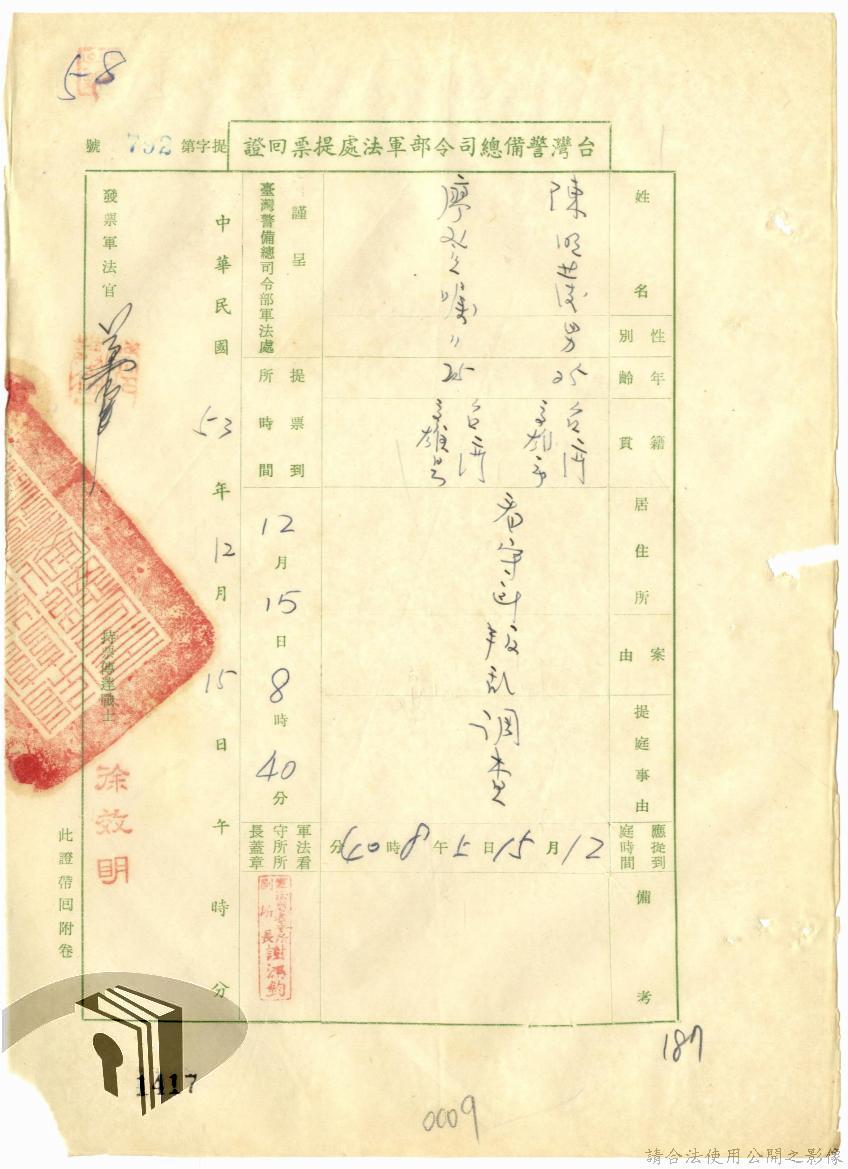 58
台灣警備總司令部軍法處提票回證
提字第 792 號
姓名
性別
年齡
籍貫
居住所
案由
提庭事由
應提到庭時間
備考
陳明發 男 25 台灣高雄市
廖 〃 25 台灣高雄縣
看守所
叛乱
調查
12月15日 午 8時40分
謹呈
臺灣警備總司令部軍法處
提票到所時間
12月15日8時40分
軍法看守所所長蓋章
所長謝
中華民國53年12月15日 午 時 分
發票軍法官
持票傳達戰士
徐效明
此證帶回附卷
187
1417
0009
請合法使用公開之影像